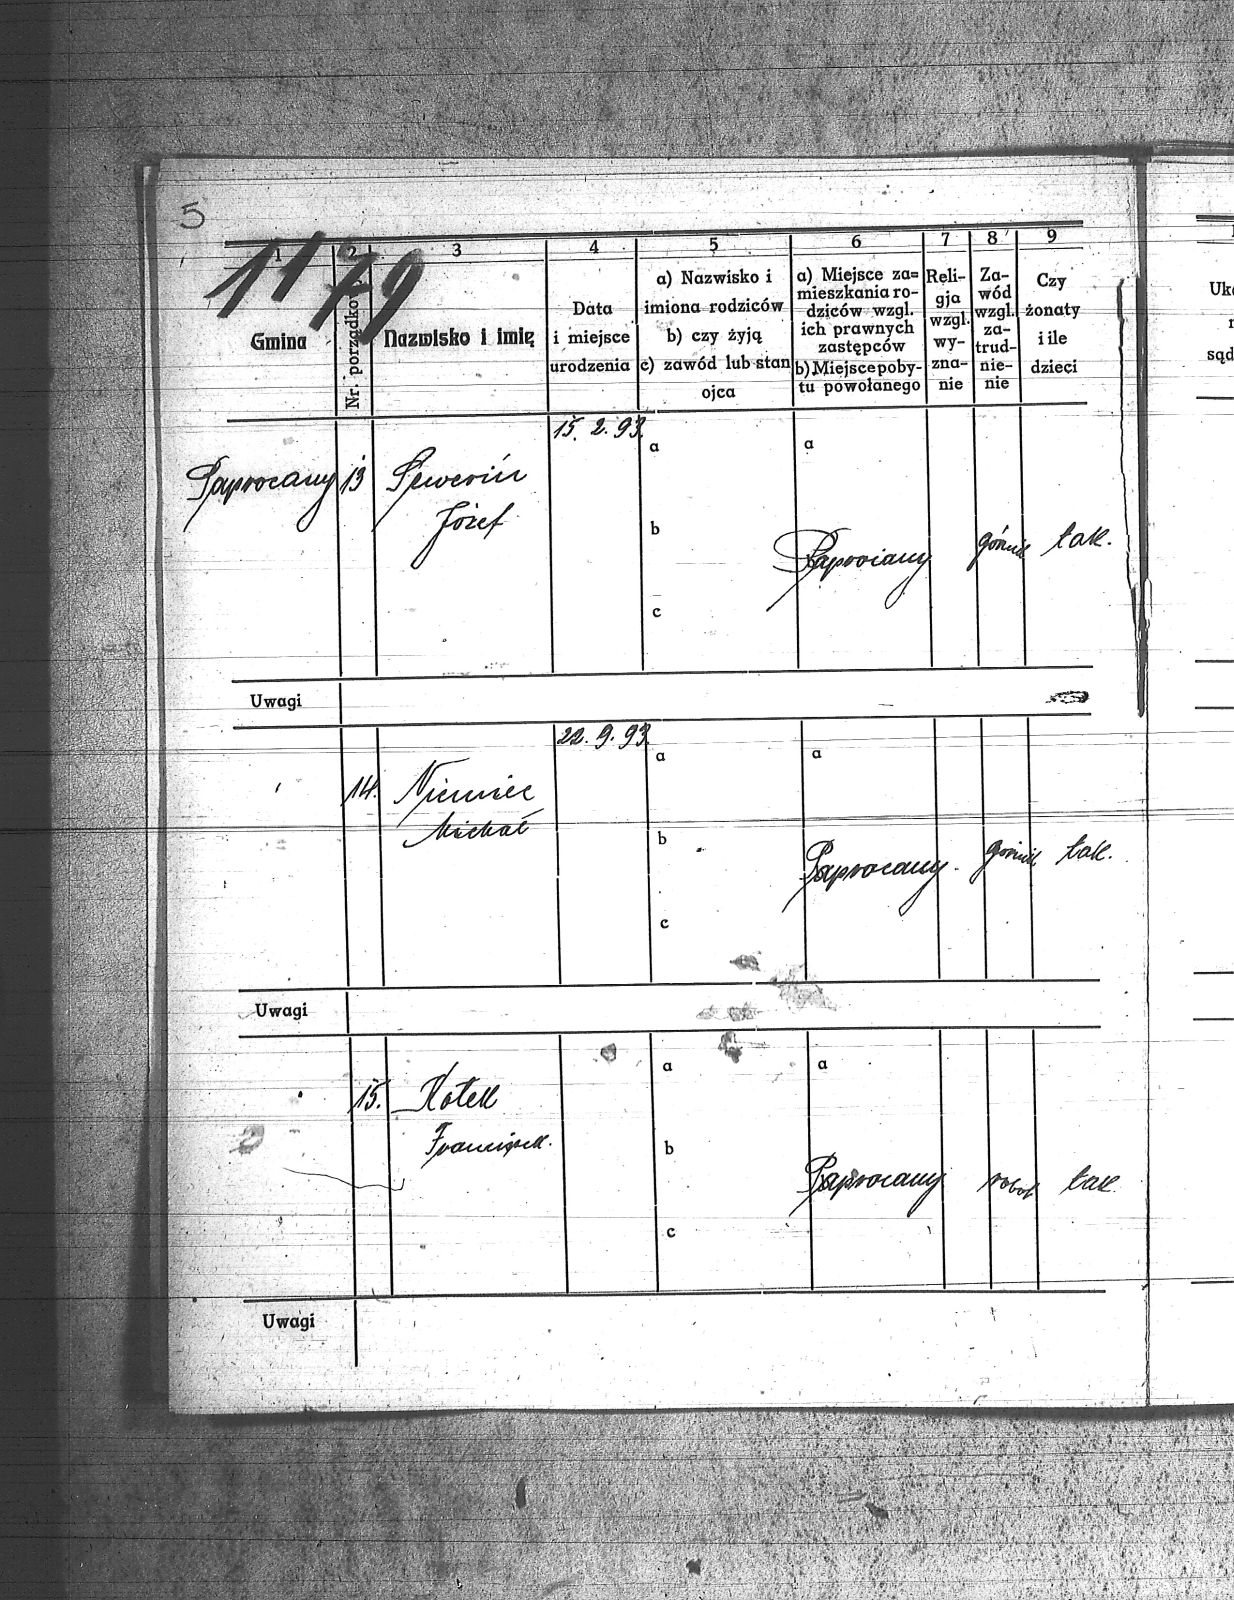 5
1179
1
2
3
4
5
6
7
8
9
Gmina
Nr. porządkow.
Nazwisko i imię
Data
i miejsce
urodzenia
a) Nazwisko i
imiona rodziców
b) czy żyją
c) zawód lub stan
ojca
a) Miejsce za=
mieszkania ro-
dziców wzgl.
ich prawnych
zastępców
b) Miejsce poby-
tu powołanego
Reli-
gja
wzgl.
wy-
zna-
nie
Za-
wód
wzgl.
za-
trud-
nie-
nie
Czy
żonaty
i ile
dzieci
Uk
sąd
Paprocany
13
Seweriń
Józef
15. 2. 93.
a
b
c
a
Paprocany
górnik
tak.
Uwagi
14.
Niemiec
Michał
22. 9. 93.
a
b
c
a
Paprocany.
górnik
tak.
Uwagi
15.
Kotek
Franciszek.
a
b
c
a
Paprocany
robot
tak
Uwagi